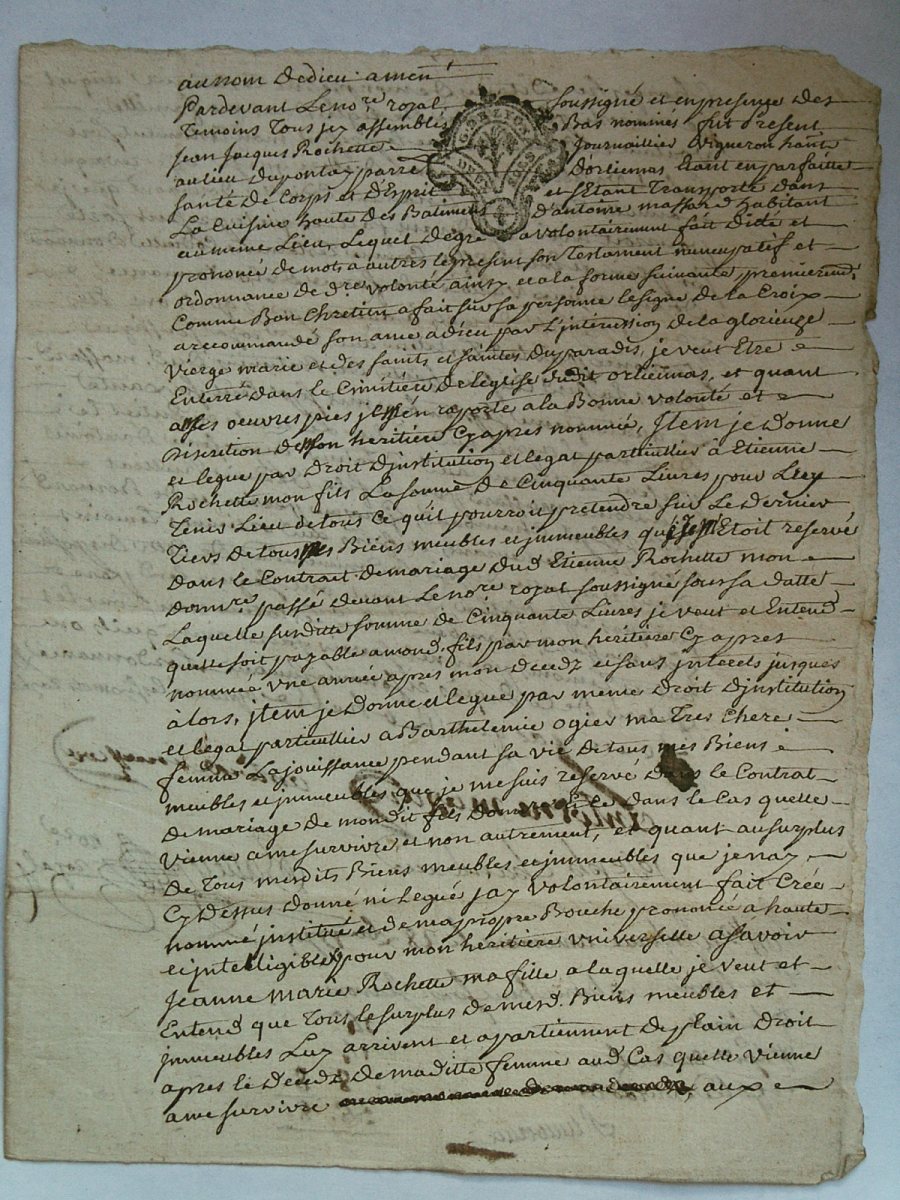 au nom de dieu amen
Pardevant Le no.re royal soussigné et en presence des
Temoins Tous jcy assemblés Bas nommés fut present
Jean Jacques Rochette Journaillier Vigneron hant
au lieu du pontag parre d'orliennas Etant en parfaitte
santé de Corps et d'Esprit et s'Etant Transporté dans
La Cuisine haute des Batiments d'antoine massard habitant
au meme Lieu, Lequel de gre a volontairement fait dicté et
prononcé de mots à autres le present son Testament nuncupatif et
ordonnance de d.re volonté ainsy et a la forme suivante premierem.t
Comme Bon Chretien a fait sur sa personne le signe de la Croix
a recommandé son ame a dieu par L'intercession de la glorieuze
Vierge marie et des saints et saintes du paradis, je veut Etre
Enterré dans le Cimitière de leglise dudit orliennas, et quant
a ses oeuvres pies j'en raporte a la Bonne volonté et
discretion de son heritière Cy apres nommée, Jtem je Donne
et legue par Droit d'jnstitution et legat particullier a Etienne
Rochette mon fils La somme de Cinquante Livres pour Luy
Tenir Lieu de tous Ce quil pourroit pretendre sur Le Dernier
Tiers de tous mes Biens meubles et jmmeubles que je m'Etoit reservé
dans le Contract de mariage dud Etienne Rochette mon
donn.re passé devant Le no.re royal soussigné sous sa datte
Laquelle surditte somme de Cinquante Livres je veut et Entend
quelle soit payable a mond. fils par mon heritiere Cy apres
nommée une année apres mon Decedz et sans jnterets jusques
à lors, jtem je Donne et legue par meme Droit d'jnstitution
et legat particullier a Barthelemie ogier ma Tres Chere
femme La jouissance pendant sa vie de tous mes Biens
meubles et jmmeubles que je me suis reservé dans le Contrat
de mariage de mondit fils dans le Cas quelle
vienne a me survivre et non autrement, et quant au surplus
de Tous mesdits Biens meubles et jmmeubles que je nay
Cy Dessus donné ni Legué jay volontairement fait Créé
nommé jnstitué et de ma propre Bouche prononcé a haute
et jntelligible pour mon heritière universelle asavoir
Jeanne marie Rochette ma fille a laquelle je veut et
Entend que Tous le surplus de mesd. Biens meubles et
jmmeubles Luy arrivent et apartiennent de plain Droit
apres le Decedz de maditte femme aud Cas quelle vienne
a me survivre aux